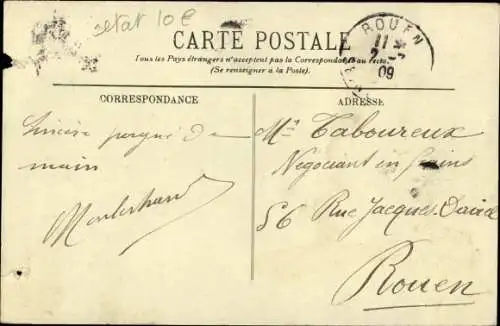 état 10€
ROUEN
11
2
09
CARTE POSTALE
Tous les Pays étrangers n'acceptent pas la Correspondance au recto.
(Se renseigner à la Poste).
CORRESPONDANCE
ADRESSE
Sincère poigné de
main
Mr Taboureux
Négociant en grains
56 Rue Jacques Daviel
Rouen